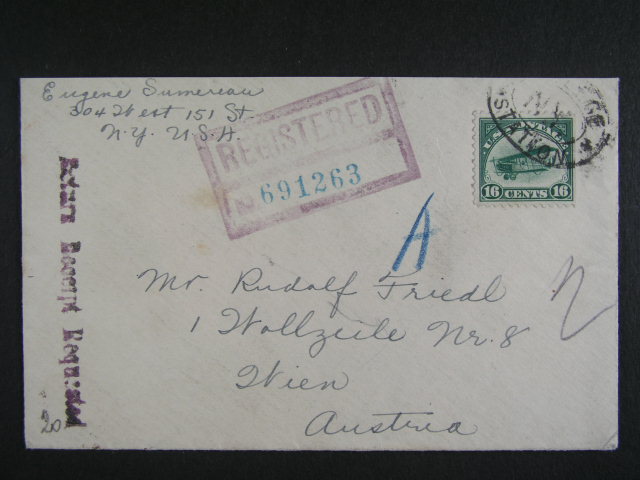 Eugene Sumereau
304 West 151 St.
N.Y. U.S.A.
REGISTERED
No 691263
STATION
U.S. POSTAGE
16 CENTS 16
Return Receipt Requested
A
Mr. Rudolf Friedl
1 Wollzeile Nr. 8
Wien
Austria
20